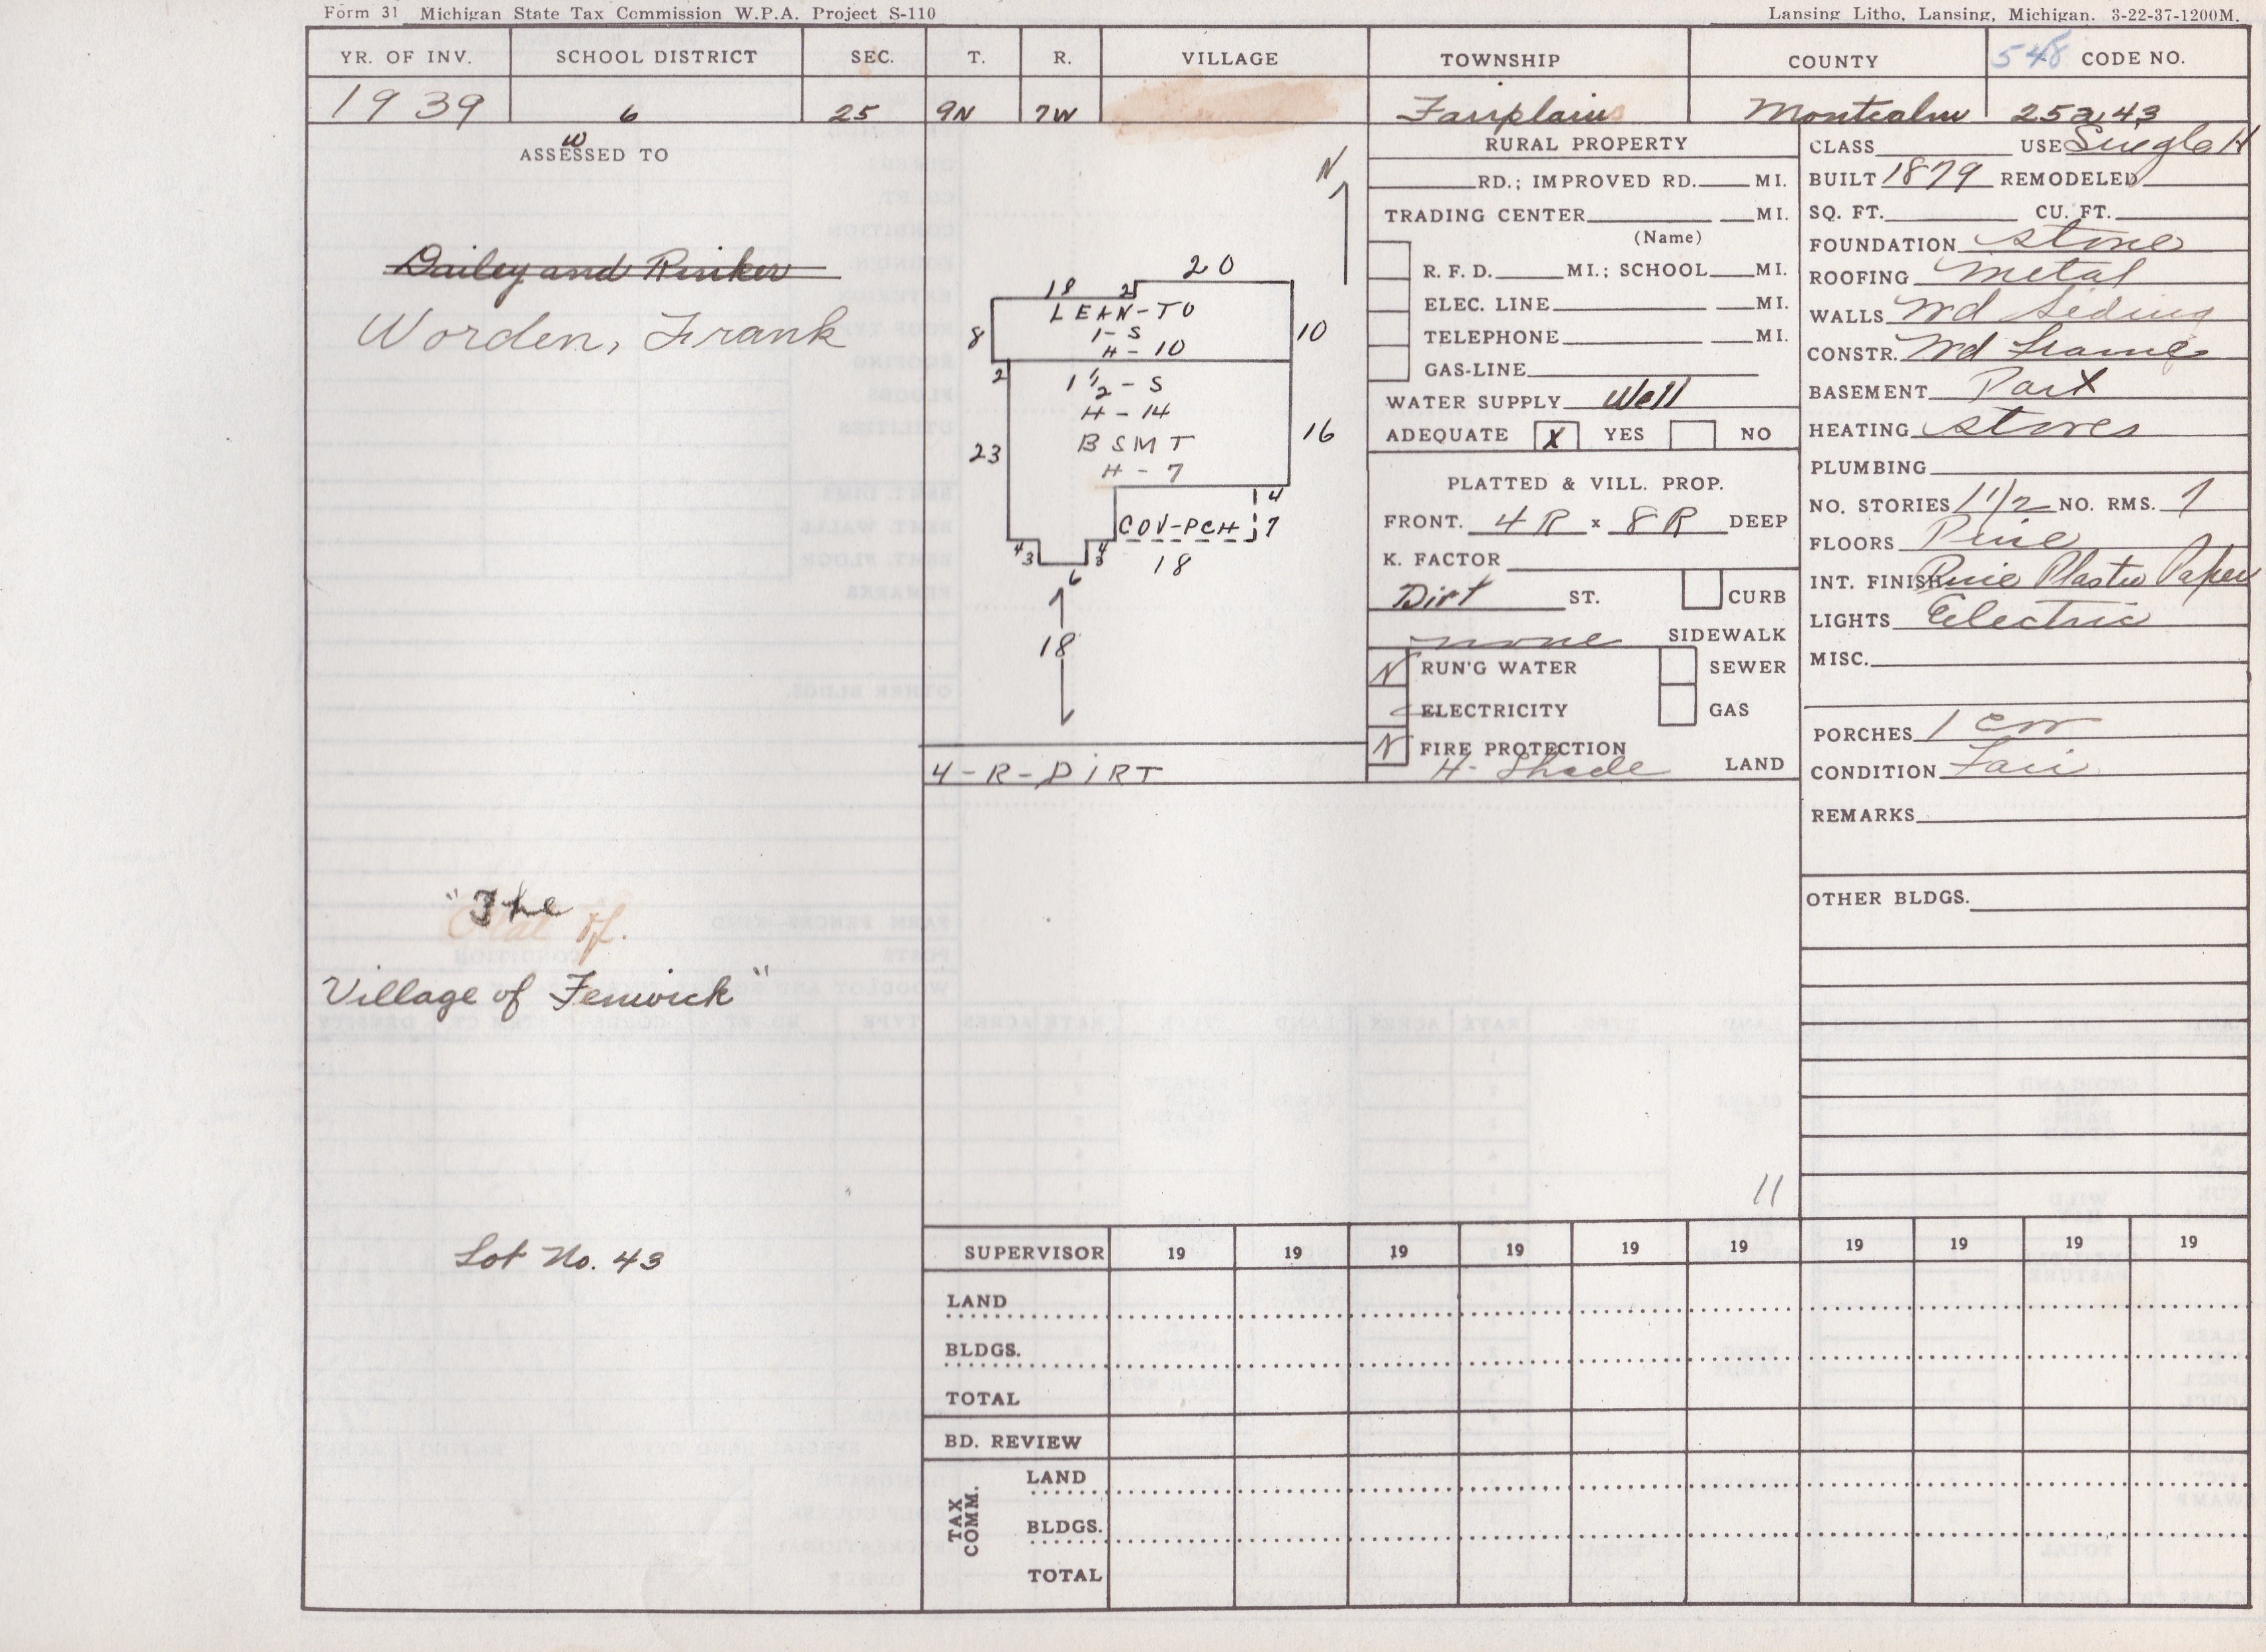 Form 31 Michigan State Tax Commission W.P.A. Project S-110
Lansing Litho, Lansing, Michigan. 3-22-37-1200M.
YR. OF INV. SCHOOL DISTRICT SEC. T. R. VILLAGE TOWNSHIP COUNTY 548 CODE NO.
1939 6 25 9N 7W Fairplains Montcalm 252,43
W
ASSESSED TO
Dailey and Rinker
Worden, Frank
"The
Plat of
Village of Fenwick"
Lot No. 43
N
20
18 2
LEAN-TO
8 1-S 10
H-10
2 1 1/2-S
H-14
23 BSMT 16
H-7
4
COV-PCH 7
4 3 4 3
6 18
18
4-R-DIRT
RURAL PROPERTY
RD.; IMPROVED RD. MI.
TRADING CENTER MI.
(Name)
R. F. D. MI.; SCHOOL MI.
ELEC. LINE MI.
TELEPHONE MI.
GAS-LINE
WATER SUPPLY Well
ADEQUATE X YES NO
PLATTED & VILL. PROP.
FRONT. 4R x 8R DEEP
K. FACTOR
Dirt ST. CURB
none SIDEWALK
N RUN'G WATER SEWER
ELECTRICITY GAS
N FIRE PROTECTION
H-Shade LAND
11
CLASS USE Single H
BUILT 1879 REMODELED
SQ. FT. CU. FT.
FOUNDATION Stone
ROOFING Metal
WALLS Wd Siding
CONSTR. Wd Frame
BASEMENT Part
HEATING Stoves
PLUMBING
NO. STORIES 1 1/2 NO. RMS. 7
FLOORS Pine
INT. FINISH Pine Plaster Paper
LIGHTS Electric
MISC.
PORCHES 1 Cov
CONDITION Fair
REMARKS
OTHER BLDGS.
SUPERVISOR 19 19 19 19 19 19 19 19 19 19
LAND
BLDGS.
TOTAL
BD. REVIEW
TAX COMM.
LAND
BLDGS.
TOTAL